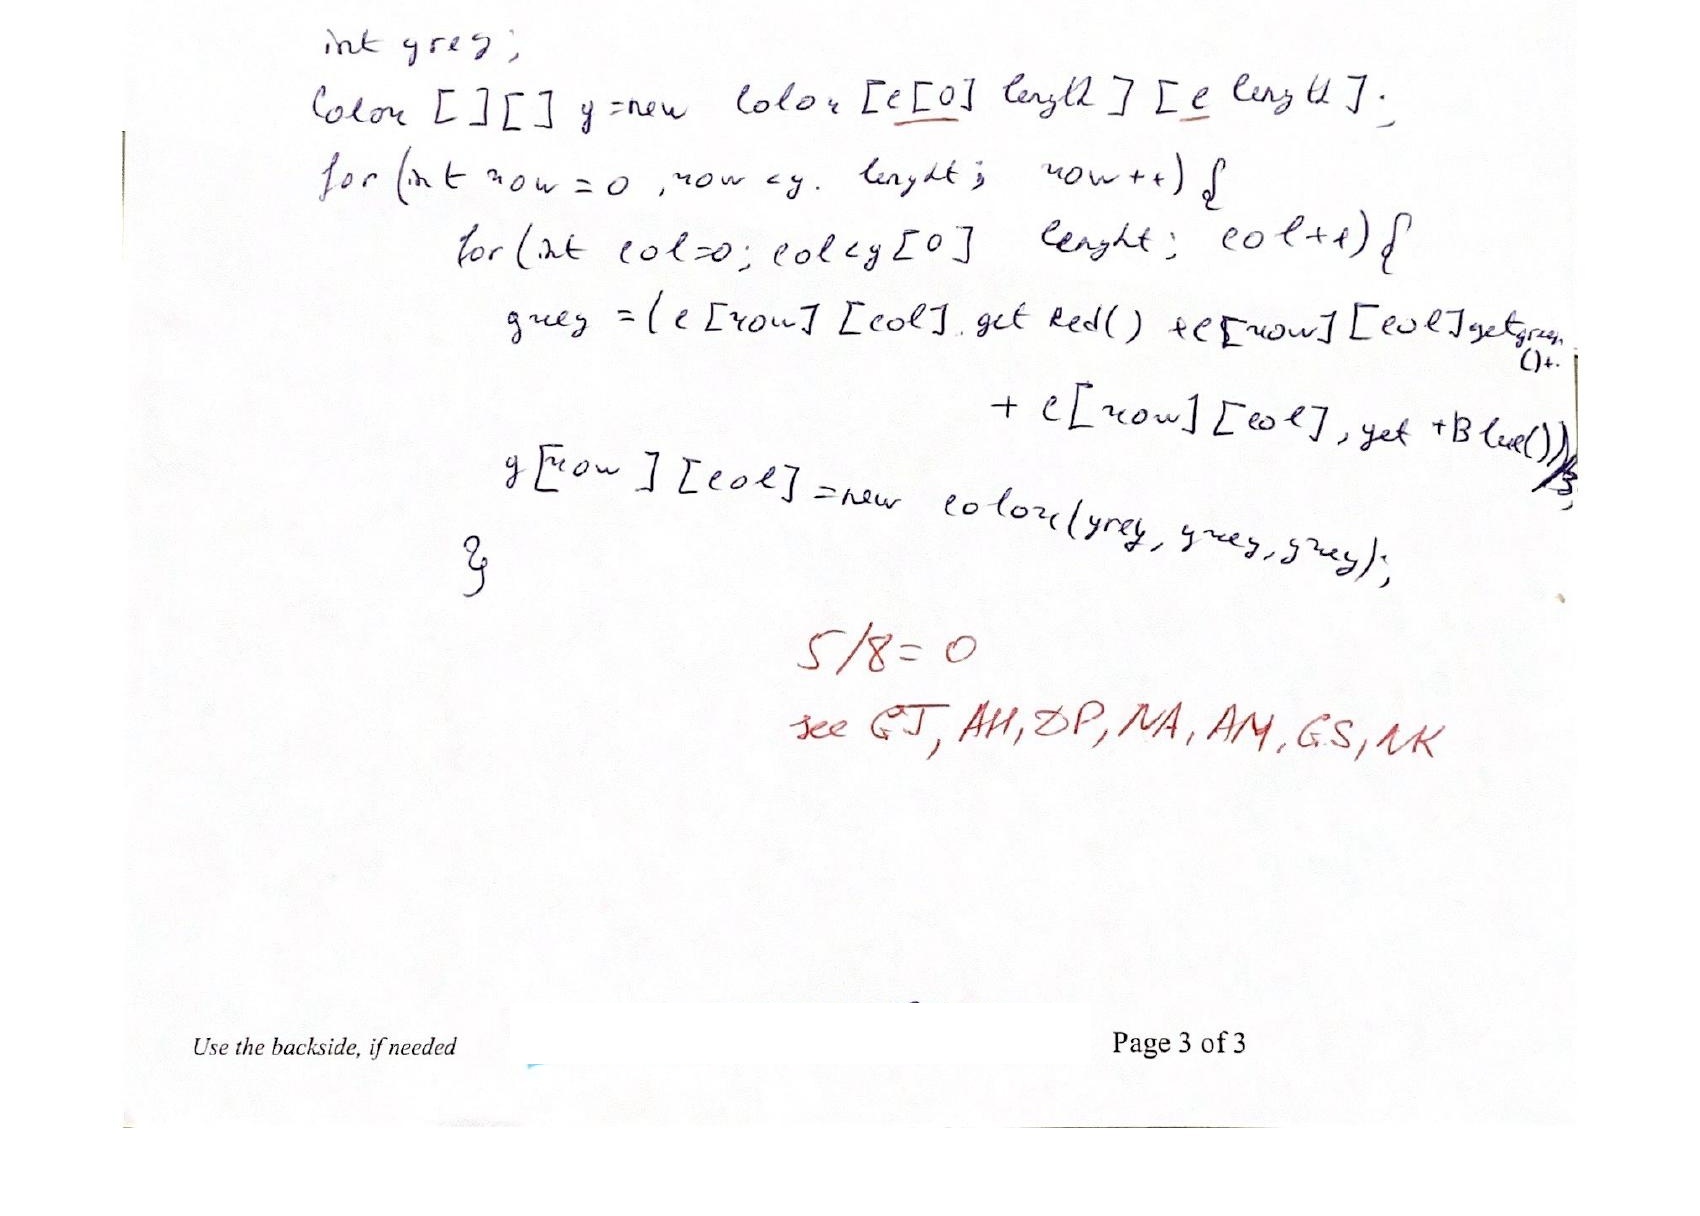 int grey;
Color [][] g = new Color [c[0] length] [c length];
for (int row = 0, row < g. lenght; row ++) {
for (int col = 0; col < g [0] lenght; col++) {
grey = (c [row] [col]. get Red() + c[row] [col] get green
()+.
+ c [row] [col], get +Blue())/3;
g [row] [col] = new color(grey, grey, grey);
}
5/8 = 0
see GJ, AH, DP, NA, AM, GS, NK
Use the backside, if needed Page 3 of 3